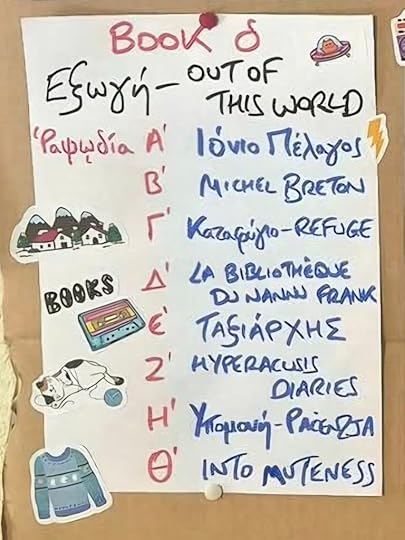 BOOK δ
Εξωγή – OUT OF
THIS WORLD
Ῥαψῳδία Α' Ιόνιο Πέλαγος
Β' MICHEL BRETON
Γ' Καταφύγιο – REFUGE
Δ' LA BIBLIOTHÈQUE
DU NANNU FRANK
BOOKS
Ε' ΤΑΞΙΑΡΧΗΣ
Ζ' HYPERACUSIS
DIARIES
Η' Υπομονή – PAĊENZJA
Θ' INTO MUTENESS